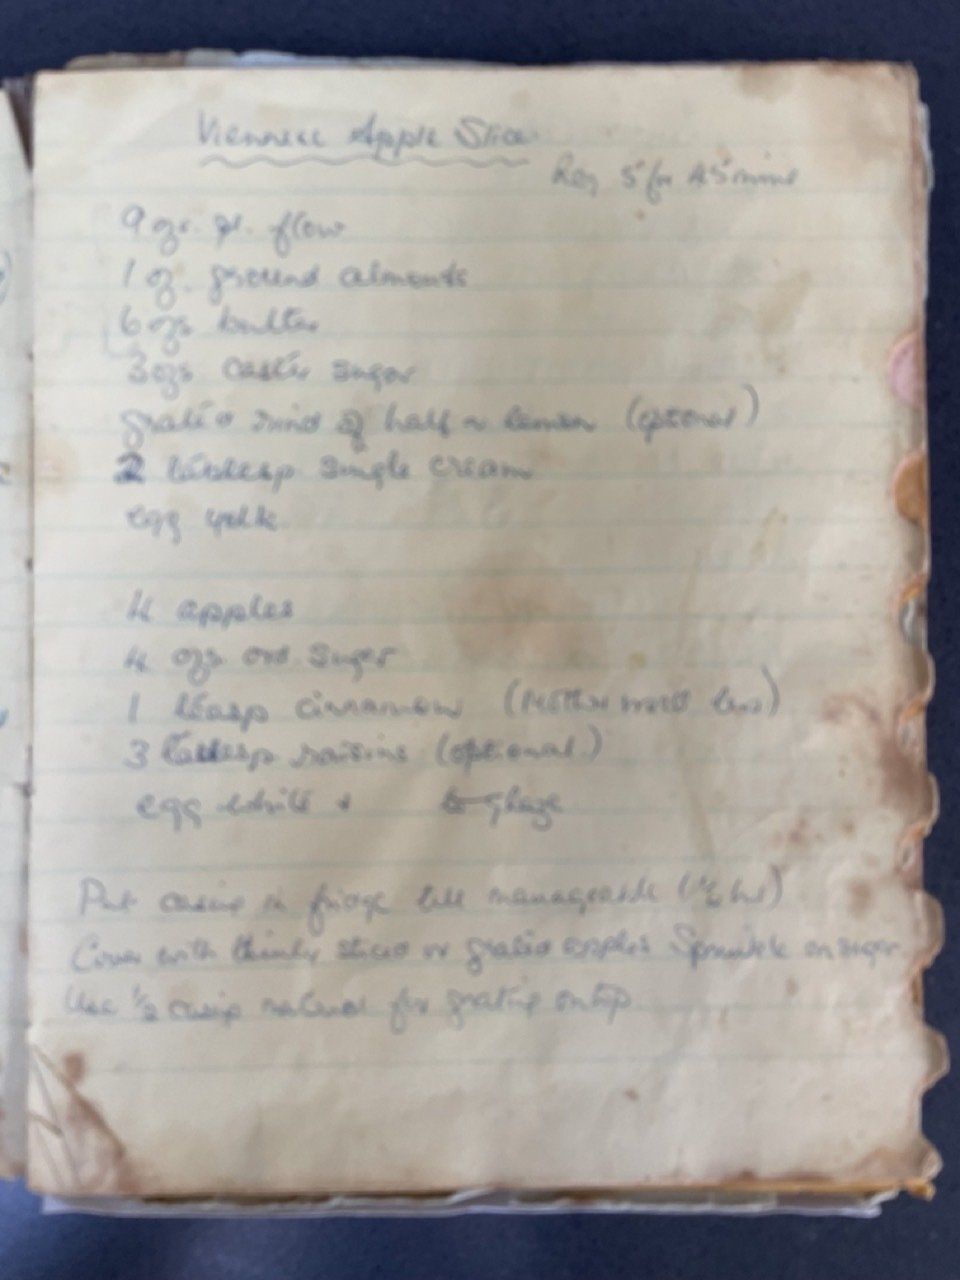 Viennese Apple Slice
Reg 5 for 45 mins
9 ozs. pl. flour
1 oz. ground almonds
6 ozs butter
3 ozs caster sugar
grated rind of half a lemon (optional)
2 tablesp single cream
egg yolk
4 apples
4 ozs sugar
1 teasp cinnamon
3 tablesp raisins (optional)
egg white + to glaze
Put in fridge till manageable (1/2 hr)
Cover with thinly sliced or grated apples Sprinkle on sugar
Use 1/3 material for grating on top